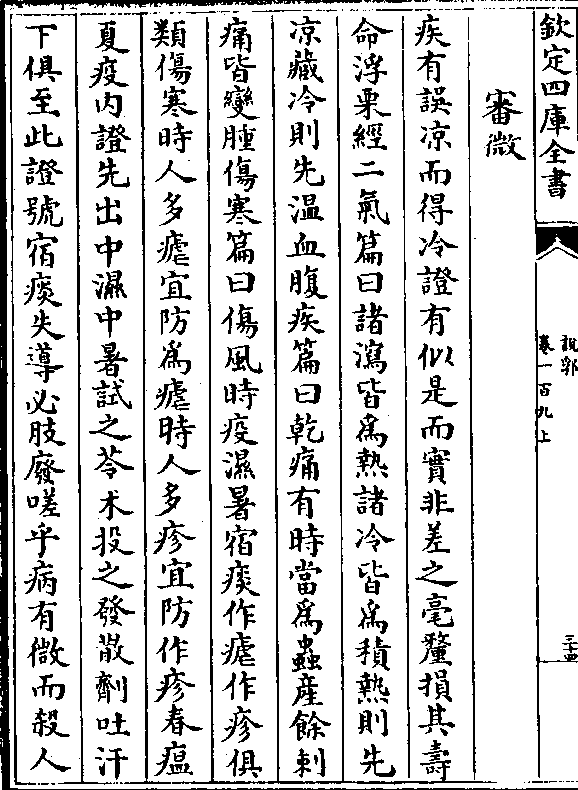 欽定四庫全書
說郛
卷一百九上
三十四
審微
疾有誤凉而得冷證有似是而實非差之毫釐損其壽
命浮粟經二氣篇曰諸瀉皆為熱諸冷皆為積熱則先
凉藏冷則先温血腹疾篇曰乾痛有時當為蟲產餘刺
痛皆變腫傷寒篇曰傷風時疫濕暑宿痰作瘧作疹俱
類傷寒時人多瘧宜防為瘧時人多疹宜防作疹春瘟
夏疫内證先出中濕中暑試之苓术投之發散劑吐汗
下俱至此證號宿痰失導必肢廢嗟乎病有微而殺人